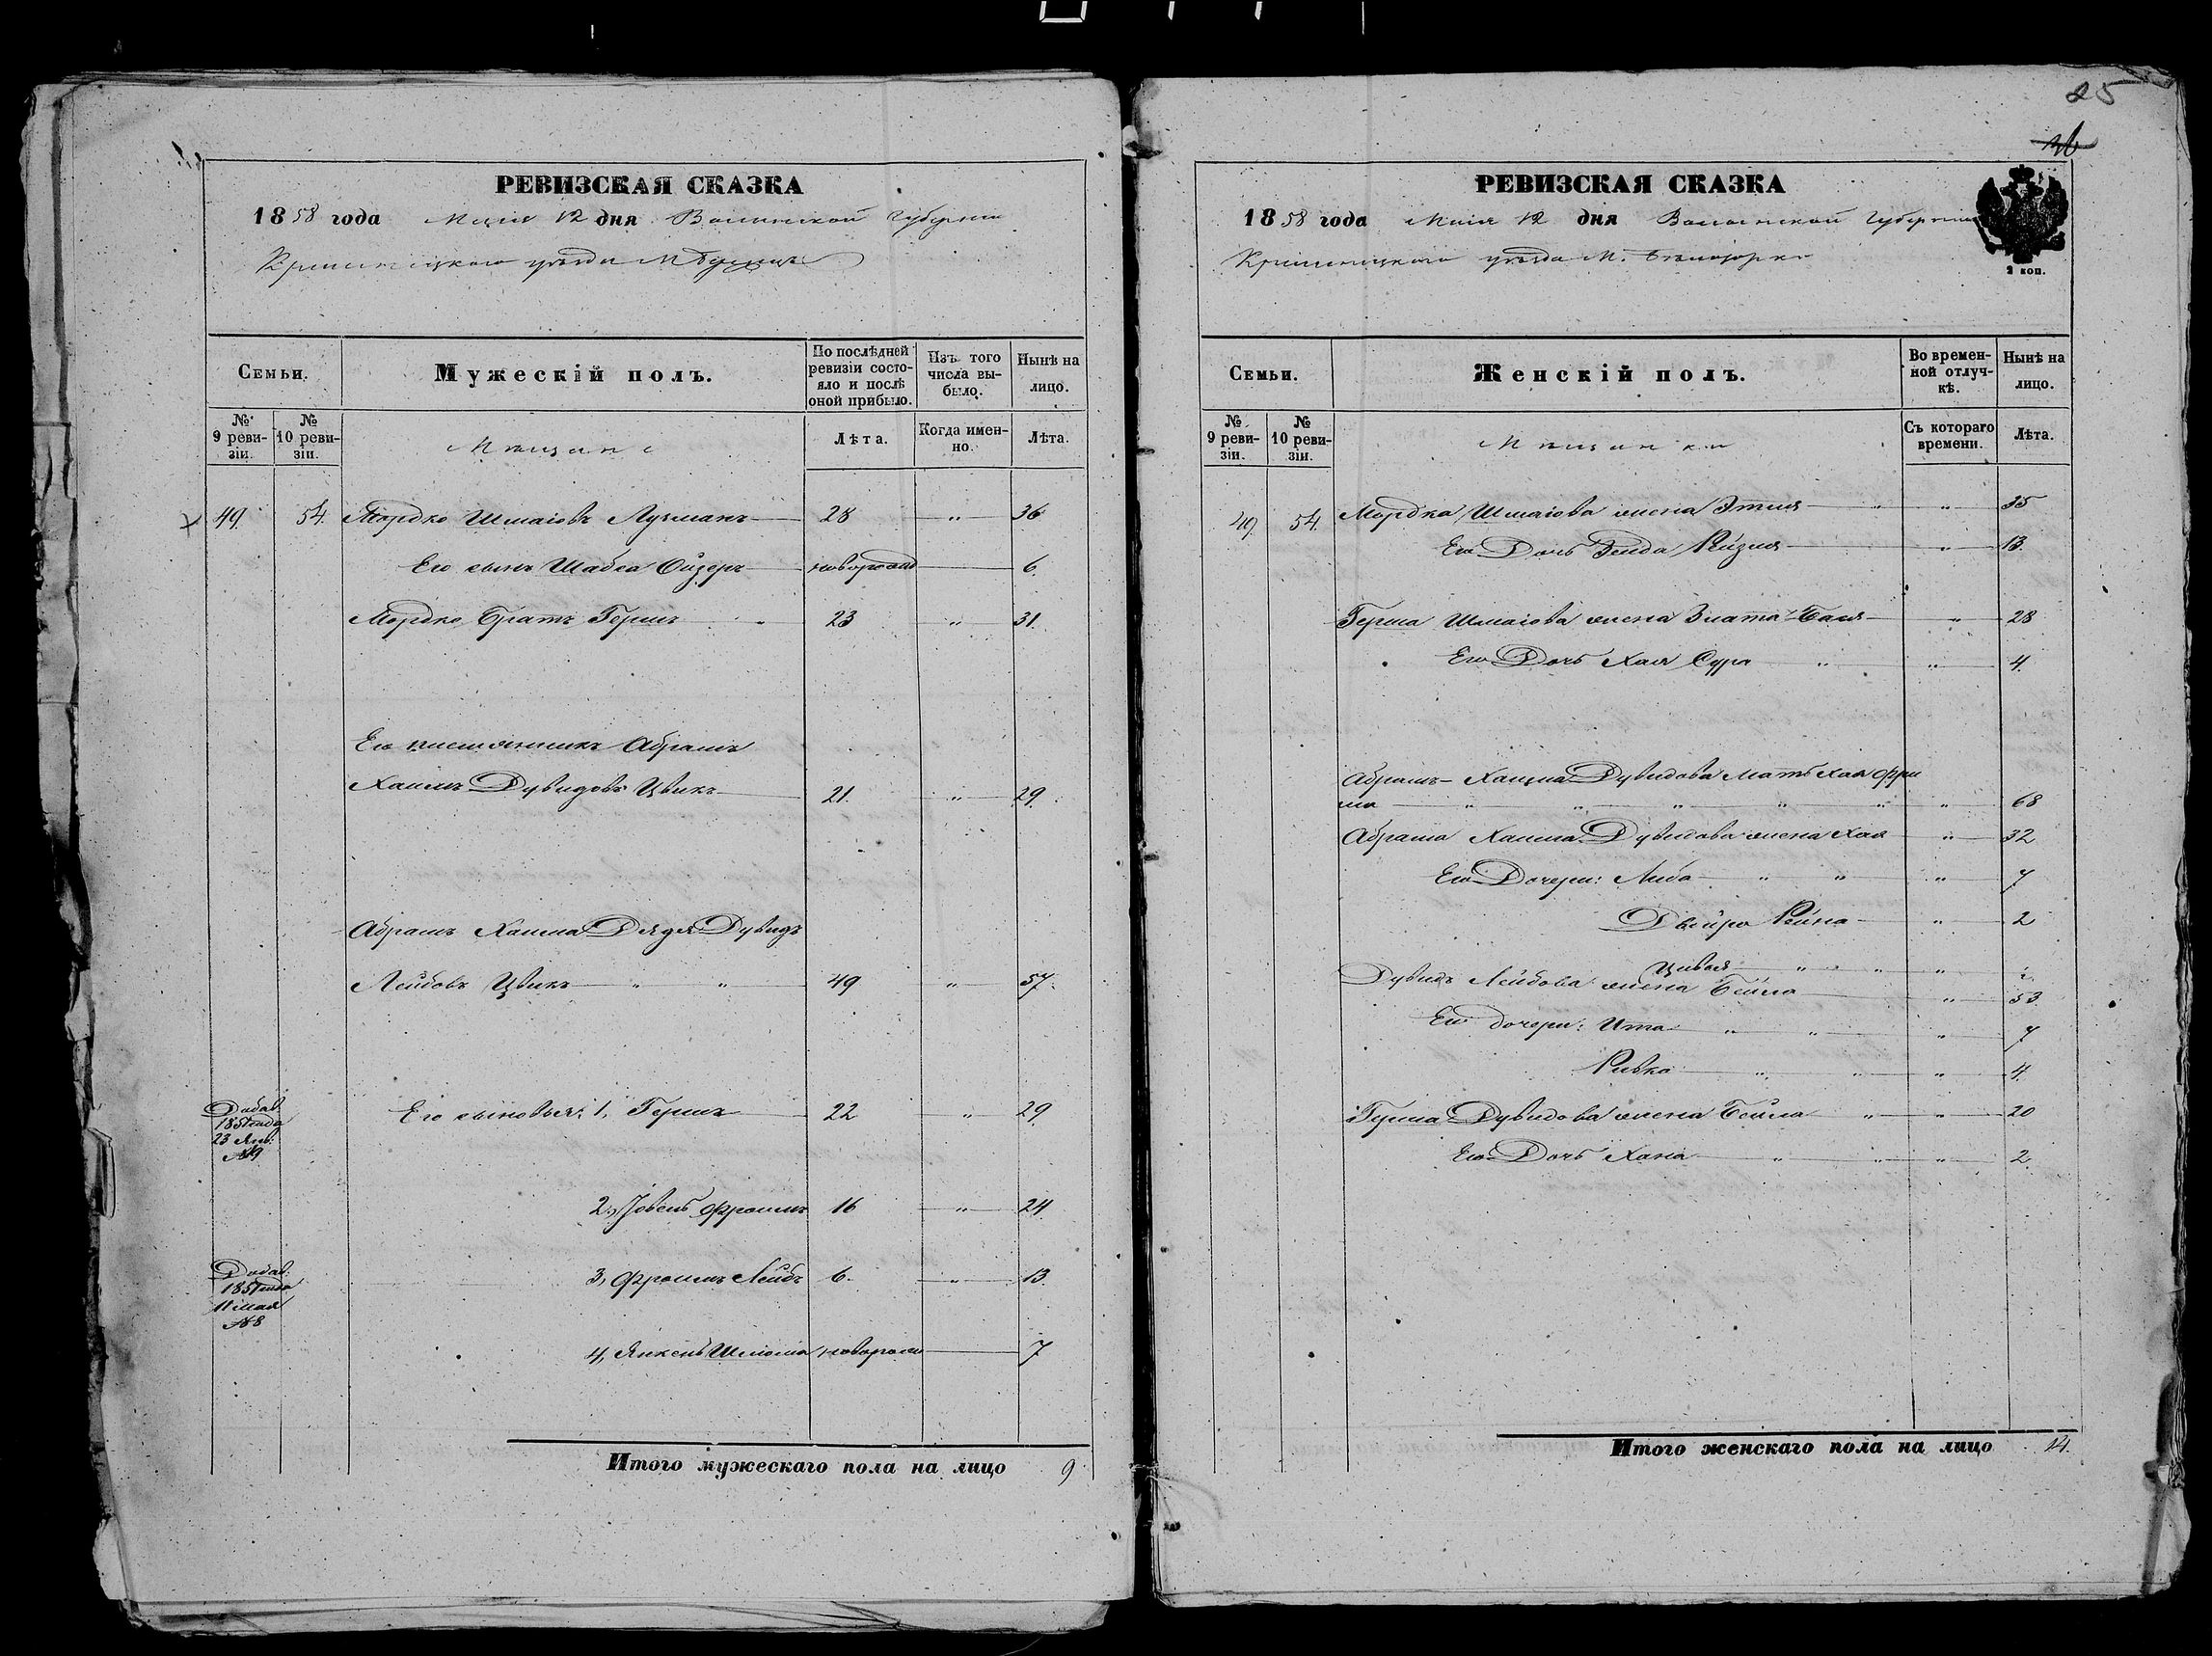 25
36
РЕВИЗСКАЯ СКАЗКА
1858 года Маія 12 дня Волынской Губерніи
Кременецкаго уѣзда М.
Семьи.
Мужескій полъ.
По послѣдней ревизіи состояло и послѣ оной прибыло.
Изъ того числа выбыло.
Нынѣ на лицо.
№ 9 ревизіи.
№ 10 ревизіи.
Мѣщане
Лѣта.
Когда именно.
Лѣта.
49. 54. Мордко Шмаіовъ Лузманъ 28 " 36
Его сынъ Шабса Ойзеръ новорожд 6.
Мордко Братъ Гершъ " 23 " 31.
Его племянникъ Абрамъ
Хаимъ Дувидовъ Цвикъ 21. " 29.
Абрамъ Хаима Дядя Дувидъ
Лейбовъ Цвикъ " " 49 " 57.
Добав.
185 года
23 Янв:
№9
Его сыновья: 1, Гершъ 22 " 29.
2, Іовель Фроимъ 16 " 24.
Добав:
185 года
11 мая
№8
3, Фроимъ Лейбъ 6. " 13.
4, Янкель Шлиома новорож 7
Итого мужескаго пола на лицо 9.
РЕВИЗСКАЯ СКАЗКА
1858 года Маія 12 дня Волынской Губерніи
Кременецкаго уѣзда М. Бѣлозорки
2 коп.
Семьи.
Женскій полъ.
Во временной отлучкѣ.
Нынѣ на лицо.
№ 9 ревизіи.
№ 10 ревизіи.
Мѣщанки
Съ котораго времени.
Лѣта.
49. 54. Мордка Шмаіова жена Этля " " 35
Его Дочь Зельда Рейзля " 13.
Герша Шмаіова жена Злата Бася " 28
Его Дочь Хая Сура " " 4.
Абрамъ-Хаима Дувидова Мать Хая Фру
ма " " " " " " 68
Абрама Хаима Дувидова жена Хая " 32
Его Дочери: Либа " " " 7
Двойра Рейза " 2
Цивья " " " "
Дувидъ Лейбова жена Бейла " 53.
Его дочери: Ита " " " 7
Ривка " " " 4.
Герша Дувидова жена Бейла " " 20
Его Дочь Хана " " " 2.
Итого женскаго пола на лицо 14.